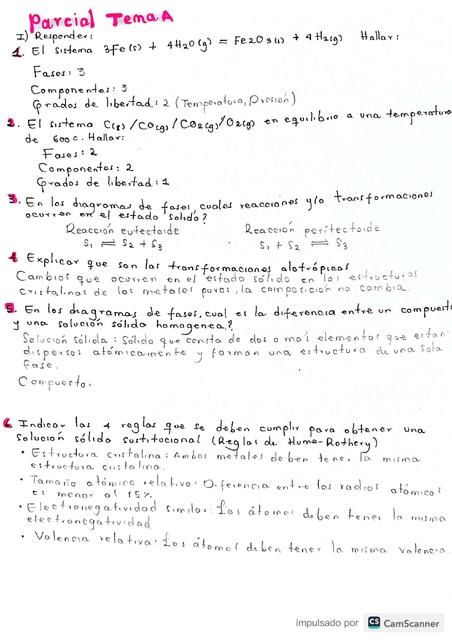 Parcial Tema A
I) Responder:
1. El sistema 3Fe(s) + 4H2O(g) = Fe2O3(s) + 4H2(g) Hallar:
Fases: 3
Componentes: 3
Grados de libertad: 2 (Temperatura, Presión)
2. El sistema C(s)/CO(g)/CO2(g)/O2(g) en equilibrio a una temperatura
de 600c. Hallar:
Fases: 2
Componentes: 2
Grados de libertad: 1
3. En los diagramas de fases, cuales reacciones y/o transformaciones
ocurren en el estado solido?
Reacción eutectoide Reacción peritectoide
S1 ⇌ S2 + S3 S1 + S2 ⇌ S3
4 Explicar que son las transformaciones alotrópicas
Cambios que ocurren en el estado sólido en las estructuras
cristalinas de los metales puros, la composición no cambia.
5. En los diagramas de fases, cual es la diferencia entre un compuesto
y una solución sólida homogenea?
Solución sólida: Sólido que consta de dos o más elementos que estan
dispersos atómicamente y forman una estructura de una sola
fase.
Compuesto.
6. Indicar las 4 reglas que se deben cumplir para obtener una
solución sólida sustitucional (Reglas de Hume-Rothery)
• Estructura cristalina: Ambos metales deben tener la misma
estructura cristalina.
• Tamaño atómico relativo: Diferencia entre los radios atómicos
es menor al 15%.
• Electronegatividad similar: Los átomos deben tener la misma
electronegatividad
• Valencia relativa: Los átomos deben tener la misma valencia.
impulsado por CS CamScanner